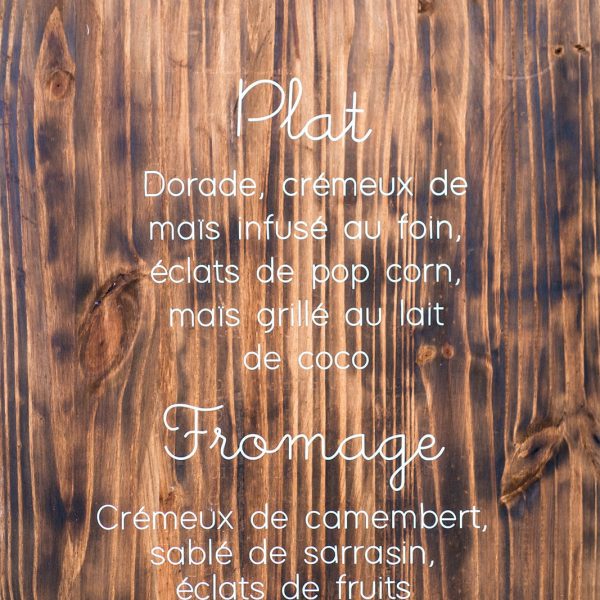 Plat
Dorade, crémeux de
maïs infusé au foin,
éclats de pop corn,
maïs grillé au lait
de coco
Fromage
Crémeux de camembert,
sablé de sarrasin,
éclats de fruits